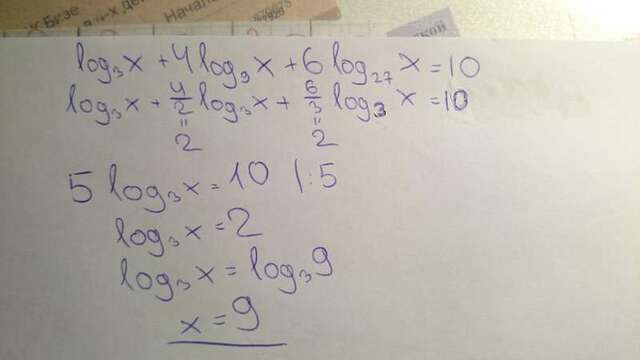 к Бизе
Нача
кой
log₃x + 4log₉x + 6log₂₇x = 10
log₃x + 4/2 log₃x + 6/3 log₃x = 10
= =
2 2
5 log₃x = 10 |:5
log₃x = 2
log₃x = log₃9
x = 9